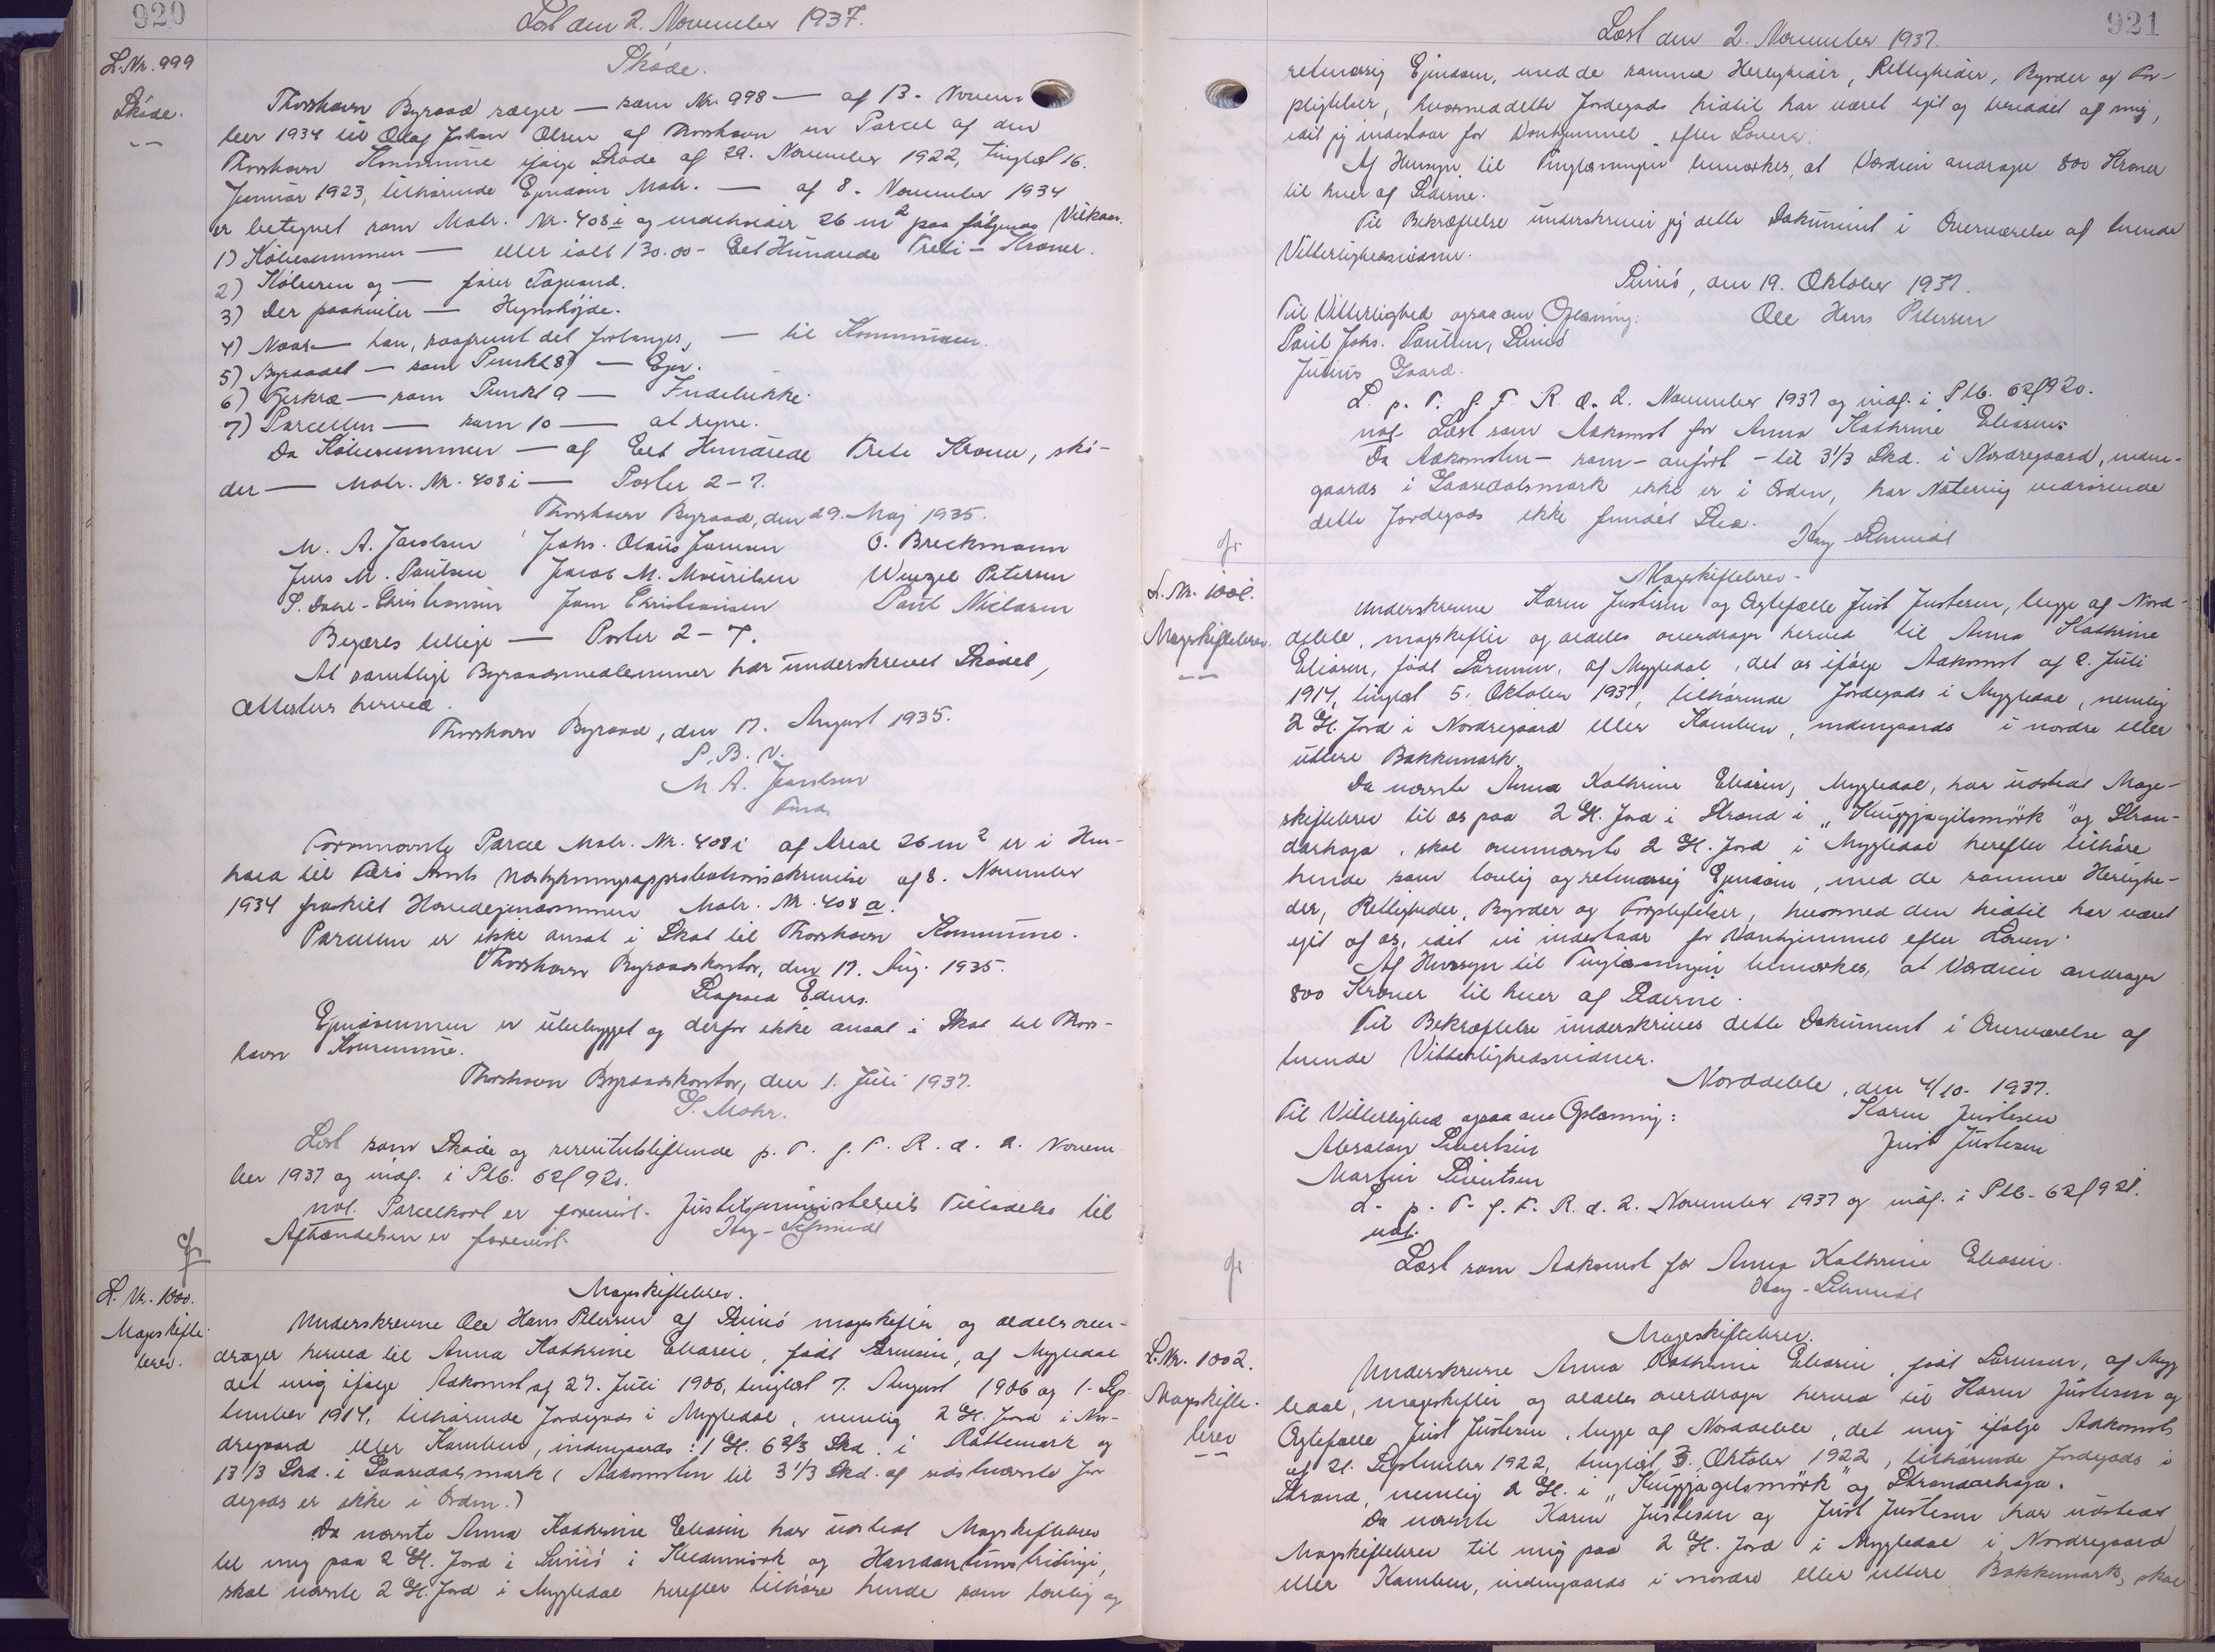 920
Læst den 2. November 1937.
L. Nr. 999
Skøde.
Skøde.
Thorshavn Byraad sælger — som Nr. 998 — af 13. Novem-
ber 1934 til Olaf Johan Olsen af Thorshavn en Parcel af den
Thorshavn Kommune ifølge Skøde af 29. November 1922, tinglæst 16.
Januar 1923, tilhørende Ejendom Matr. — af 8. November 1934
er betegnet som Matr. Nr. 408 i og indeholder 26 m² paa følgende Vilkaar.
1) Købesummen — eller ialt 130.00 - Eet Hundrede Treti - Kroner.
2) Køberen og — fører Tagvand.
3) Der paahviler — Hegnshøjde.
4) Naar — han, saafremt det forlanges, — til Kommunen.
5) Byraadet — som Punkt 8) — Ejer.
6) Fjerkræ — som Punkt 9 — Indelukke.
7) Parcellen — som 10 — at regne.
Da Købesummen — af Eet Hundrede Treti Kroner, skø-
der — Matr. Nr. 408 i — Poster 2-7.
Thorshavn Byraad, den 29. Maj 1935.
M. A. Jacobsen Johs. Olaus Joensen O. Breckmann
Jens M. Poulsen Jacob M. Mouritsen Wenzel Petersen
S. Dahl-Christiansen Joen Christiansen Poul Niclasen
Begæres tillige — Poster 2-7.
At samtlige Byraadsmedlemmer har underskrevet Skødet,
attesteres herved.
Thorshavn Byraad, den 17. August 1935.
P. B. V.
M. A. Jacobsen
Fmd.
Forannævnte Parcel Matr. Nr. 408 i af Areal 26 m² er i Hen-
hold til Færø Amts Udstykningsapprobationsskrivelse af 8. November
1934 fraskilt Hovedejendommen Matr. Nr. 408 a.
Parcellen er ikke ansat i Skat til Thorshavn Kommune.
Thorshavn Byraadskontor, den 17. Aug. 1935.
Ejendommen er ubebygget og derfor ikke ansat i Skat til Thors-
havn Kommune.
Thorshavn Byraadskontor, den 1. Juli 1937.
S. Mohr.
Læst som Skøde og servitutstiftende p. T. f. F. R. d. 2. Novem
ber 1937 og indf. i Ptb. 62 f 920.
not. Parcelkort er forevist. Justitsministeriets Tilladelse til
Afhændelsen er forevist. Hey-Schmidt
L. Nr. 1000.
Mageskifte-
brev.
Mageskiftebrev.
Underskrevne Ole Hans Petersen af Sumbø mageskifter og aldeles over-
drager herved til Anna Kathrine Eliasen, født Sørensen, af Mygledal
det mig ifølge Adkomst af 27. Juli 1906, tinglæst 7. August 1906 og 1. Sep-
tember 1914, tilhørende Jordegods i Mygledal, nemlig 2 Gl. Jord i Nor-
dregaard eller Kamben, indengaards: 1 Gl. 6 2/3 Skd. i Rættemark og
13 1/3 Skd. i Gaasedalsmark (Adkomsten til 3 1/3 Skd. af sidstnævnte Jor
degods er ikke i Orden.)
Da nævnte Anna Kathrine Eliasen har udstedt Mageskiftebrev
til mig paa 2 Gl. Jord i Sumbø i Keldumørk og Handantúnstridingi,
skal nævnte 2 Gl. Jord i Mygledal herefter tilhøre hende som lovlig og
921
Læst den 2. November 1937.
retmæssig Ejendom, med de samme Herligheder, Rettigheder, Byrder og For-
pligtelser, hvormed dette Jordegods hidtil har været ejet og besiddet af mig,
idet jeg indestaar for Vanhjemmel efter Loven.
Af Hensyn til Tinglæsningen bemærkes, at Værdien andrager 800 Kroner
til hver af Siderne.
Til Bekræftelse underskriver jeg dette Dokument i Overværelse af tvende
Vitterlighedsvidner.
Sumbø, den 19. Oktober 1937.
Til Vitterlighed ogsaa om Oplæsning: Ole Hans Petersen
Poul Johs. Poulsen, Sumbø
Julius Gaard.
L. p. T. f. F. R. d. 2. November 1937 og indf. i Ptb. 62 f 920.
not. Læst som Adkomst for Anna Kathrine Eliasen.
Da Adkomsten - som - anført - til 3 1/3 Skd. i Nordregaard, inden-
gaards i Gaasedalsmark ikke er i Orden, har Notering vedrørende
dette Jordegods ikke fundet Sted.
Hey-Schmidt
L. Nr. 1001.
Mageskiftebrev.
Mageskiftebrev.
Underskrevne Karen Justesen og Ægtefælle Just Justesen, begge af Nord-
deble, mageskifter og aldeles overdrager herved til Anna Kathrine
Eliasen, født Sørensen, af Mygledal, det os ifølge Adkomst af 2. Juli
1917, tinglæst 5. Oktober 1937, tilhørende Jordegods i Mygledal, nemlig
2 Gl. Jord i Nordregaard eller Kamben, indengaards i nordre eller
ubtere Bakkemark.
Da nævnte Anna Kathrine Eliasen, Mygledal, har udstedt Mage-
skiftebrev til os paa 2 Gl. Jord i Strond i "Knúppjagilsmørk" og Stron-
darhaga, skal ovennævnte 2 Gl. Jord i Mygledal herefter tilhøre
hende som lovlig og retmæssig Ejendom, med de samme Herlighe-
der, Rettigheder, Byrder og Forpligtelser, hvormed den hidtil har været
ejet af os, idet vi indestaar for Vanhjemmel efter Loven.
Af Hensyn til Tinglæsningen bemærkes, at Værdien andrager
800 Kroner til hver af Siderne.
Til Bekræftelse underskrives dette Dokument i Overværelse af
tvende Vitterlighedsvidner.
Norddeble, den 4/10 - 1937.
Til Vitterlighed ogsaa om Oplæsning: Karen Justesen
Absalon Sivertsen Just Justesen
Martin Sivertsen
L. p. T. f. F. R. d. 2. November 1937 og indf. i Ptb. 62 f 921.
not.
Læst som Adkomst for Anna Kathrine Eliasen.
Hey-Schmidt
L. Nr. 1002.
Mageskifte-
brev
Mageskiftebrev.
Underskrevne Anna Kathrine Eliasen, født Sørensen, af Myg
ledal, mageskifter og aldeles overdrager herved til Karen Justesen og
Ægtefælle Just Justesen, begge af Norddeble, det mig ifølge Adkomst
af 21. September 1922, tinglæst 3. Oktober 1922, tilhørende Jordegods i
Strond, nemlig 2 Gl. i "Knúppjagilsmørk" og Strondarhaga.
Da nævnte Karen Justesen og Just Justesen har udstedt
Mageskiftebrev til mig paa 2 Gl. Jord i Mygledal i Nordregaard
eller Kamben, indengaards i nordre eller ubtere Bakkemark, skal